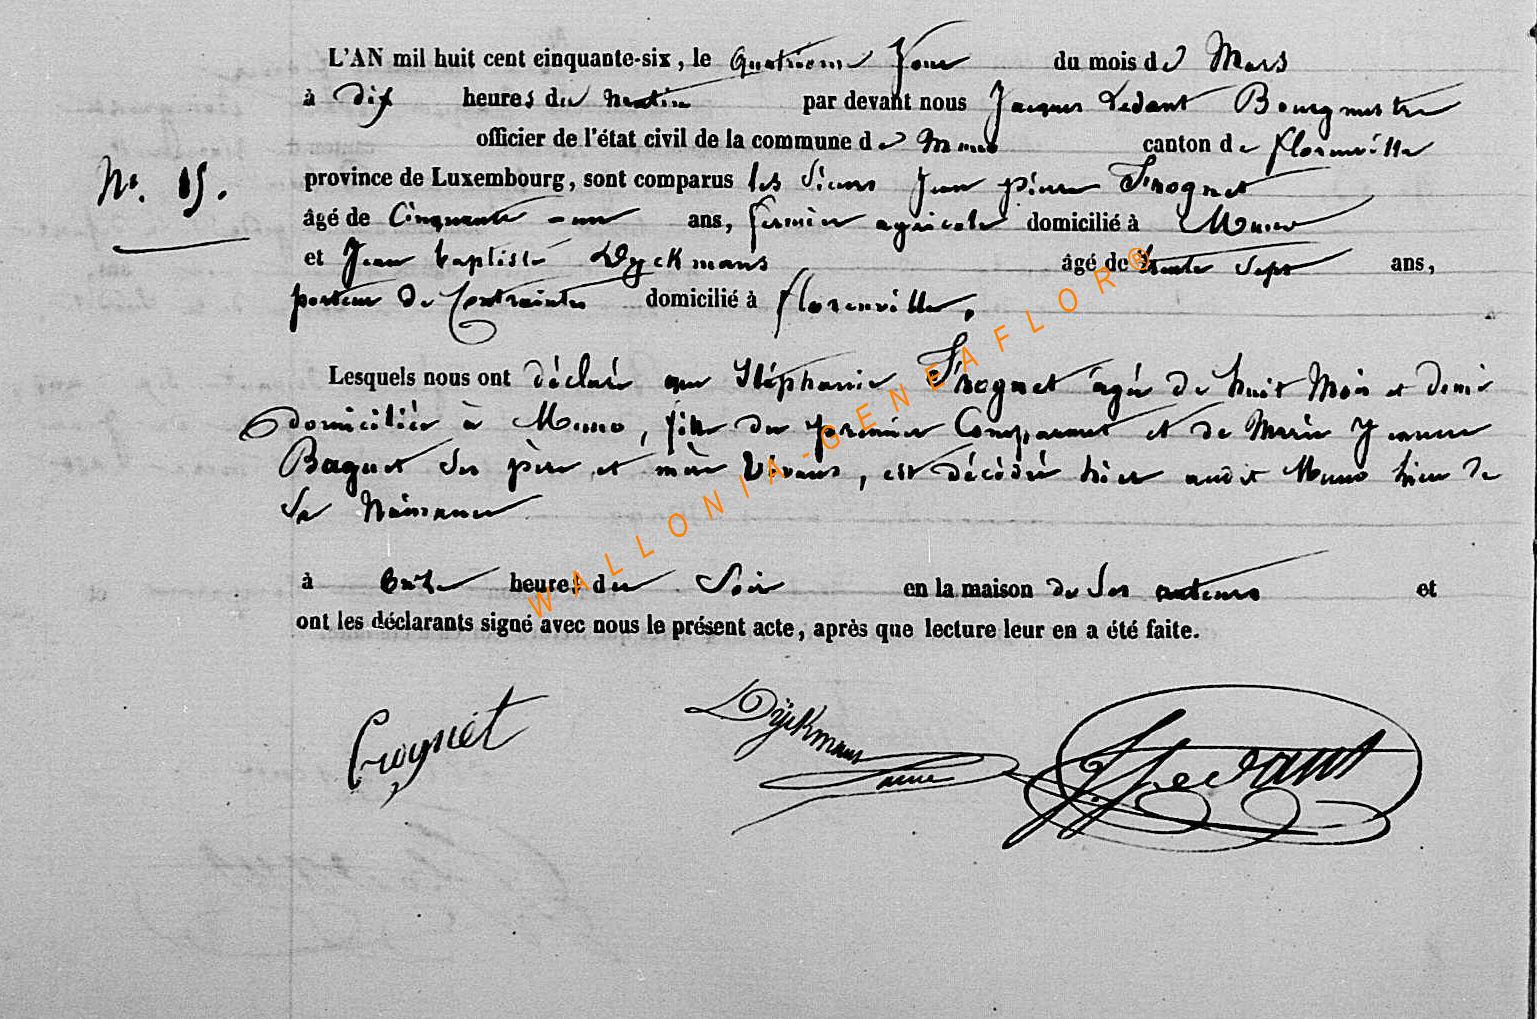 L'AN mil huit cent cinquante-six, le quatrieme Jour du mois de Mars
à dix heures du matin par devant nous Jacques Ledant Bourgmestre
officier de l'état civil de la commune de Muno canton de florenville
N°. 15. province de Luxembourg, sont comparus les Sieurs Jean pierre Frognet
âgé de Cinquante-un ans, fermier agricole domicilié à Muno
et Jean baptiste Dyckmans âgé de trente Sept ans,
porteur de Contraintes domicilié à florenville,
Lesquels nous ont déclaré que Stéphanie Frognet âgée de huit Mois et demi
domiciliée à Muno, fille du premier Comparant et de Marie Jeanne
Baguet Ses père et mère Vivans, est décédée hier audit Muno lieu de
Sa Naissance
à onze heures du Soir en la maison de Ses auteurs et
ont les déclarants signé avec nous le présent acte, après que lecture leur en a été faite.
Frognet Dÿckmans JLedant
WALLONIA-GENEAFLOR®